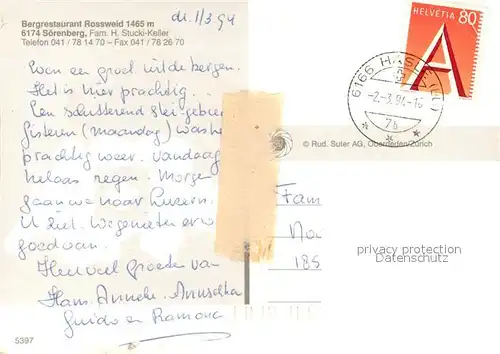 Bergrestaurant Rossweid 1465 m
6174 Sörenberg, Fam. H. Stucki-Keller
Telefon 041 / 78 14 70 – Fax 041 / 78 26 70
di. 1/3 94
Van een groet uit de bergen.
Het is hier prachtig...
Een schitterend ski-gebied
Gisteren (maandag) was het
prachtig weer. Vandaag
helaas regen. Morgen
gaan we naar Luzern.
U ziet. We genieten er
goed van.
Heel veel groeten van
Hans, Anneke, Anuschka
Guido en Ramona
5397
HELVETIA 80
A
6166 HASLE (LU)
-2.-3.94-16
7b
© Rud. Suter AG, Oberrieden/Zürich
Fam
Na
185
privacy protection
Datenschutz